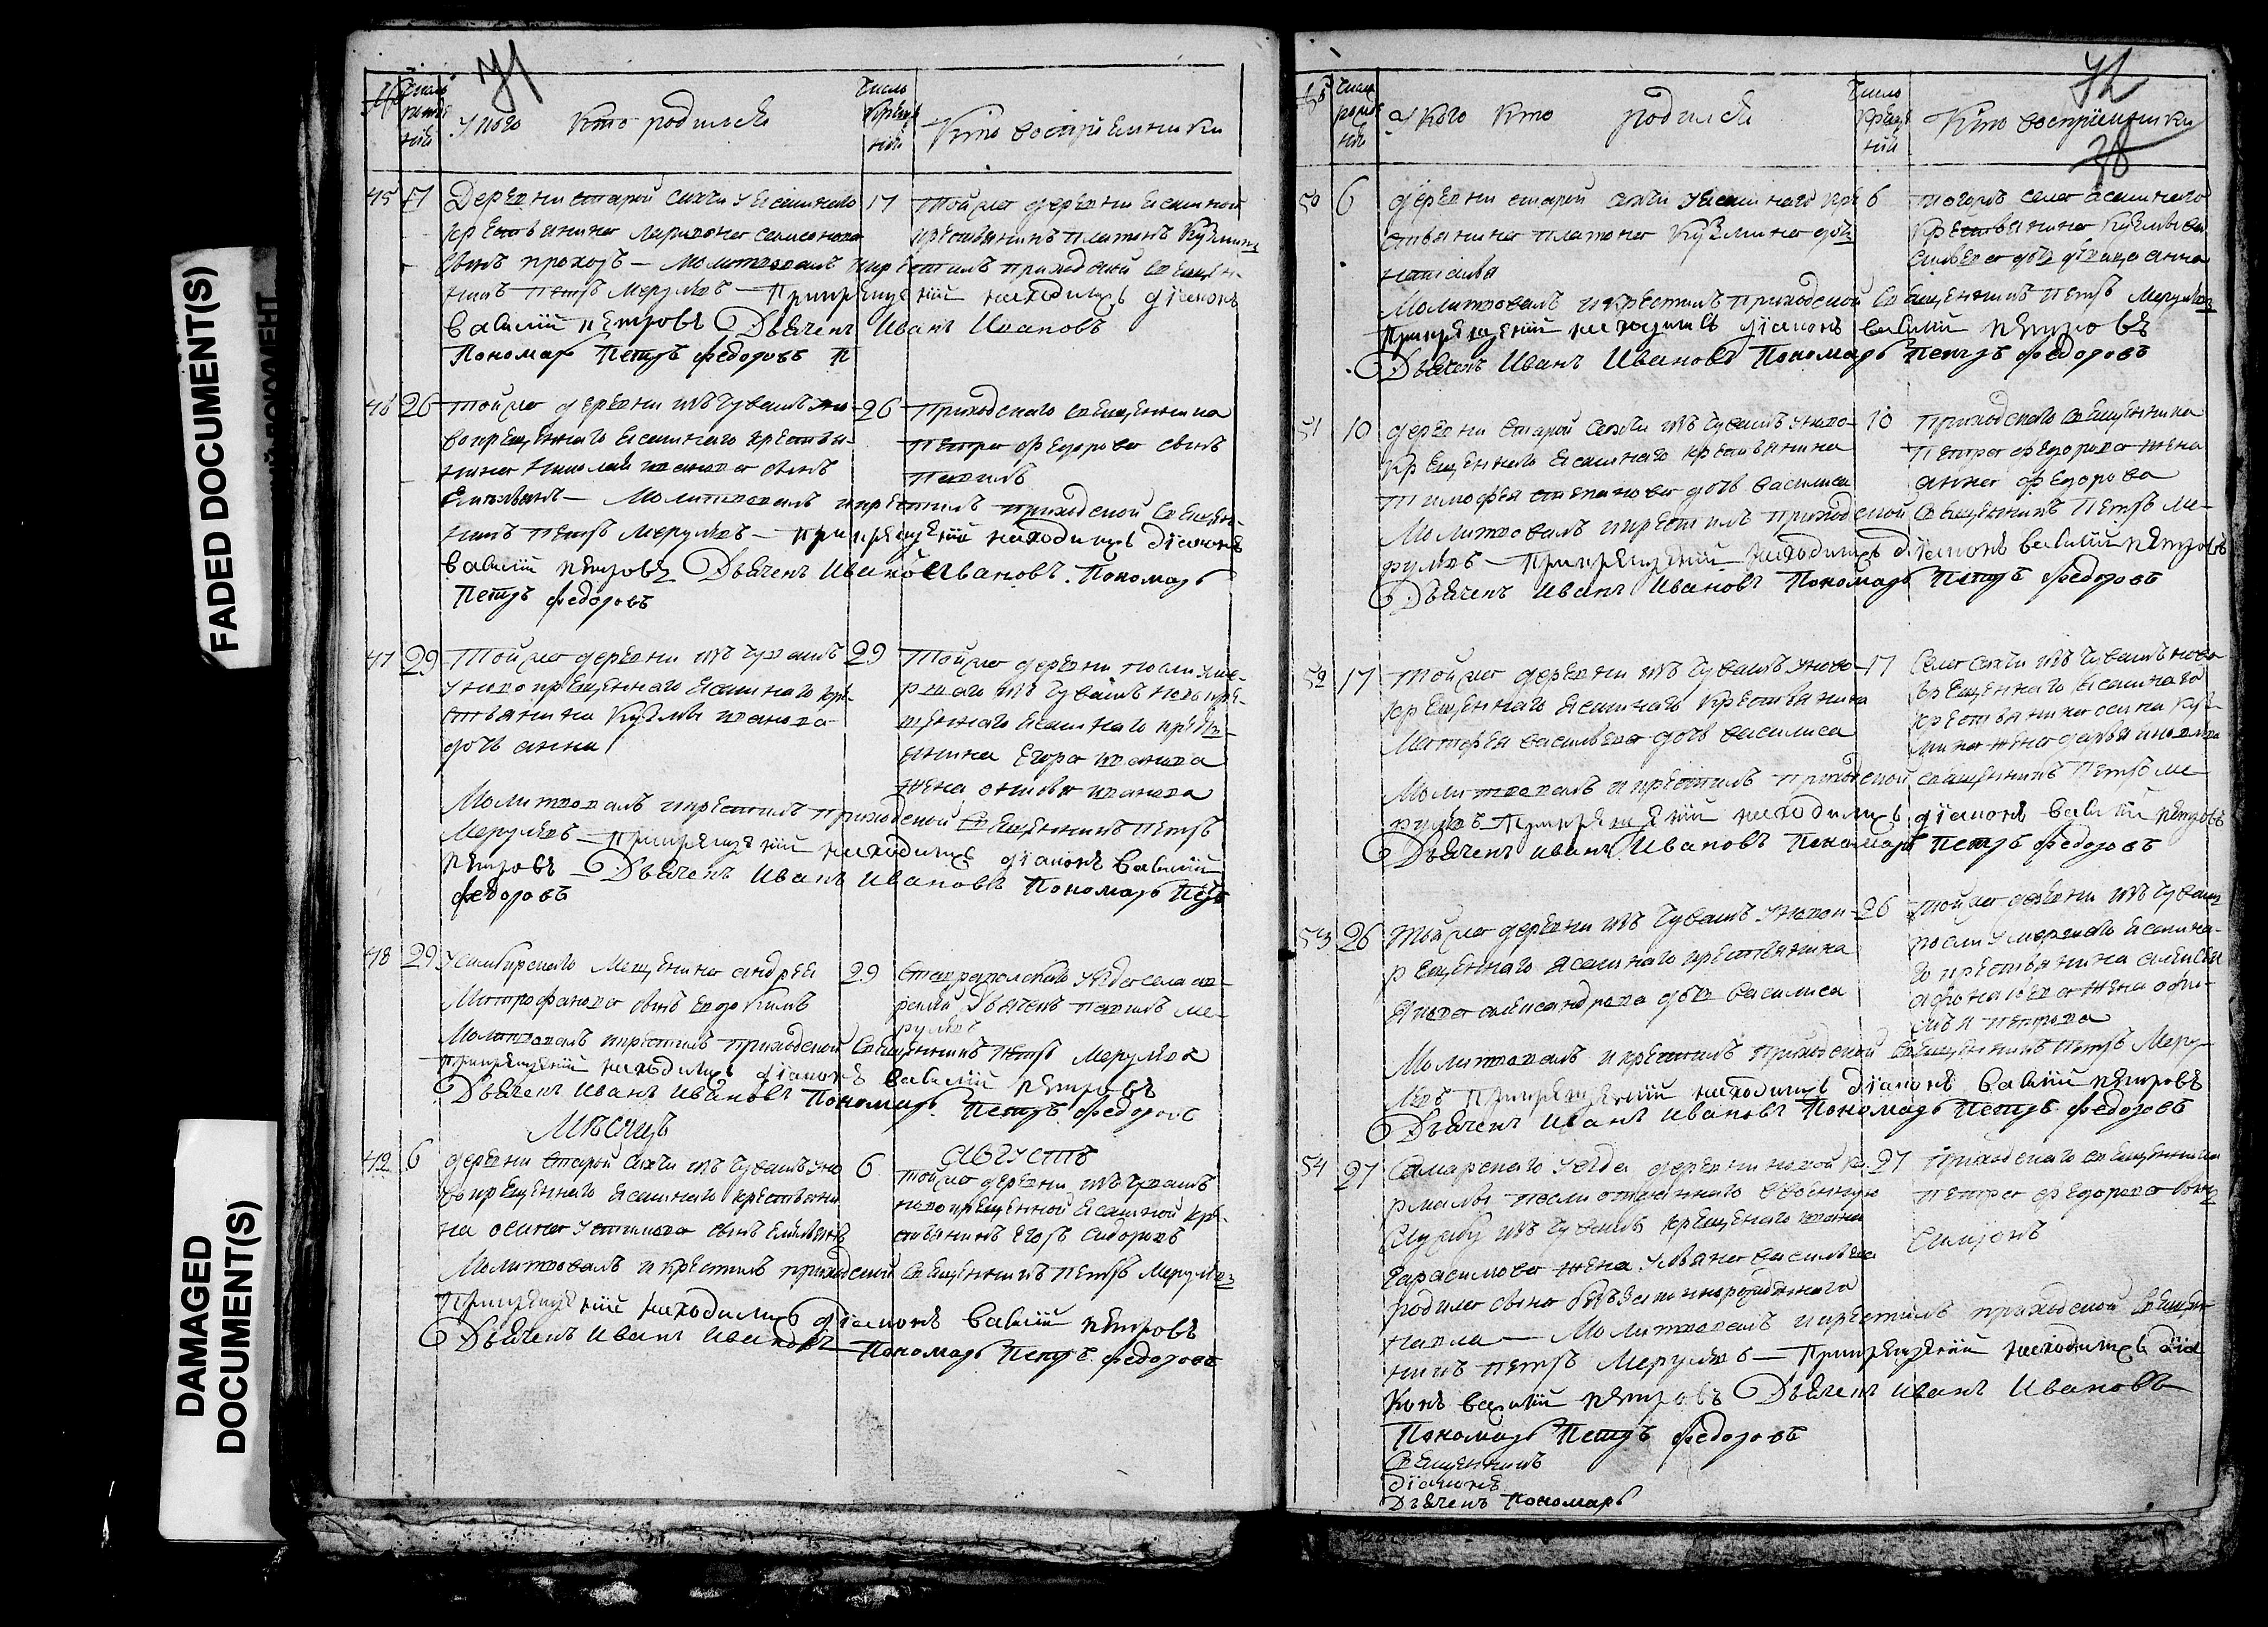 FADED DOCUMENT(S)
DAMAGED DOCUMENT(S)
71
№
Число рожде нiй
У кого кто родился
Число креще нiй
Кто воспрiемники
45 17 Деревни старой сахчи у ясашнаго
крестьянина лариона самсонова
сынъ прохоръ — Молитвовалъ и крестилъ приходской священ-
никъ петръ Меркулевъ — При крещенiи находились дiаконъ
василiй петровъ Дьячекъ Иванъ Ивановъ
Пономарь Петръ Федоровъ
17 Той же деревни ясашной
крестьянинъ платонъ Кузминъ
46 26 Той же деревни изъ чувашъ у но-
вокрещеннаго ясашнаго крестья-
нина николая иванова сынъ
Молитвовалъ и крестилъ приходской священ-
никъ петръ Меркулевъ — при крещенiи находились дiаконъ
василiй петровъ Дьячекъ Иванъ Ивановъ. Пономарь
Петръ Федоровъ
26 Приходскаго священника
петра федорова сынъ
павелъ
47 29 Той же деревни изъ чувашъ
у новокрещеннаго ясашнаго кре-
стьянина Кузмы иванова
дочь анна
Молитвовалъ и крестилъ приходской священникъ петръ
Меркулевъ — при крещенiи находились дiаконъ василiй
петровъ — Дьячекъ Иванъ Ивановъ Пономарь Петръ
Федоровъ
29 Той же деревни посли уме-
ршаго изъ чувашъ новокре-
щеннаго ясашнаго кресть-
янина Егора иванова
жена иванова
48 29 У симбирскаго Мещанина андрея
Митрофанова сынъ евдокимъ
Молитвовалъ и крестилъ приходской священникъ петръ Меркулевъ
при крещенiи находились дiаконъ василiй петровъ
Дьячекъ Иванъ Ивановъ Пономарь Петръ Федоровъ
29 Ставропольскаго уезда села
дьячекъ павелъ Ме-
ркулевъ
Месяцъ
Августъ
49 6 деревни старой сахчи изъ чувашъ у но
вокрещеннаго ясашнаго крестьяни
на осипа устинова сынъ емельянъ
Молитвовалъ и крестилъ приходской священникъ петръ Меркулевъ
при крещенiи находились дiаконъ василiй петровъ
Дьячекъ Иванъ Ивановъ Пономарь Петръ Федоровъ
6 Той же деревни изъ чувашъ
новокрещенной ясашной кре-
стьянинъ Егоръ Сидоровъ
72
38
№
Число рожде нiй
У кого кто родился
Число креще нiй
Кто воспрiемники
50 6 деревни старой сахчи у ясашнаго кре
стьянина платона Кузмина дочь
наталья
Молитвовалъ и крестилъ приходской священникъ петръ Меркулевъ
При крещенiи находились дiаконъ василiй петровъ
Дьячекъ Иванъ Ивановъ Пономарь Петръ Федоровъ
6 тогожъ села ясашнаго
крестьянина Кузмы ва
сильева дочь девица анна
51 10 деревни старой сахчи изъ чувашъ у ново-
крещеннаго ясашнаго крестьянина
Тимофея степанова дочь василиса
Молитвовалъ и крестилъ приходской священникъ петръ Ме-
ркулевъ — При крещенiи находились дiаконъ василiй петровъ
Дьячекъ Иванъ Ивановъ Пономарь Петръ Федоровъ
10 Приходскаго священника
петра федорова жена
анна федорова
52 17 Той же деревни изъ чувашъ у ново-
крещеннаго ясашнаго крестьянина
Матфея васильева дочь василиса
Молитвовалъ и крестилъ приходской священникъ петръ Ме
ркулевъ — При крещенiи находились дiаконъ василiй петровъ
Дьячекъ Иванъ Ивановъ Пономарь Петръ Федоровъ
17 Села сахчи изъ чувашъ ново
крещеннаго ясашнаго
крестьянина осипа куз-
мина жена дарья
53 26 Той же деревни изъ чувашъ у новок-
рещеннаго ясашнаго крестьянина
александрова дочь василиса
Молитвовалъ и крестилъ приходской священникъ петръ Мерку-
левъ При крещенiи находились дiаконъ василiй петровъ
Дьячекъ Иванъ Ивановъ Пономарь Петръ Федоровъ
26 той же деревни изъ чувашъ
посли умершаго ясашна-
го крестьянина алексея
афонасьева жена офи-
мья петрова
54 27 Самарскаго уезда деревни новой
посли отданнаго в военную
службу изъ чувашъ крещенаго ивана
Гарасимова жена ульяна васильева
родила сына
павла — Молитвовалъ и крестилъ приходской священ
никъ петръ Меркулевъ — При крещенiи находились дiа
конъ василiй петровъ Дьячекъ Иванъ Ивановъ
Пономарь Петръ Федоровъ
27 Приходскаго священника
петра федорова сынъ
Священникъ
Дiаконъ
Дьячекъ Пономарь